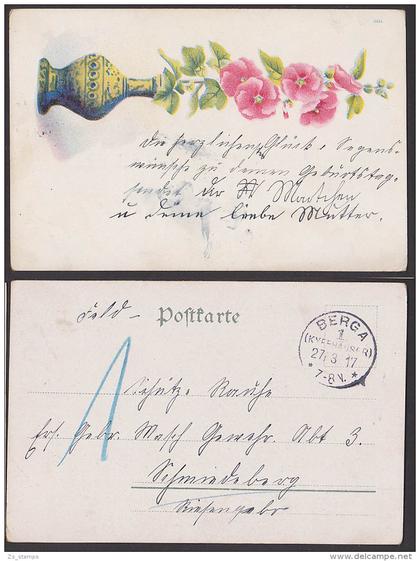 Die herzlichen Glück & Segens-
wünsche zu deinem Geburtstag
sendet dir Mädchen
u deine liebe Mutter.
Feld – Postkarte
BERGA
1
(KYFFHÄUSER)
27. 3. 17
* 7-8 V. *
1
Schütze Rauhe
Ers. Gebr. Masch Gewehr. Abt 3.
Schmiedeberg
Riesengebr
Zs_stamps
delcampe.net